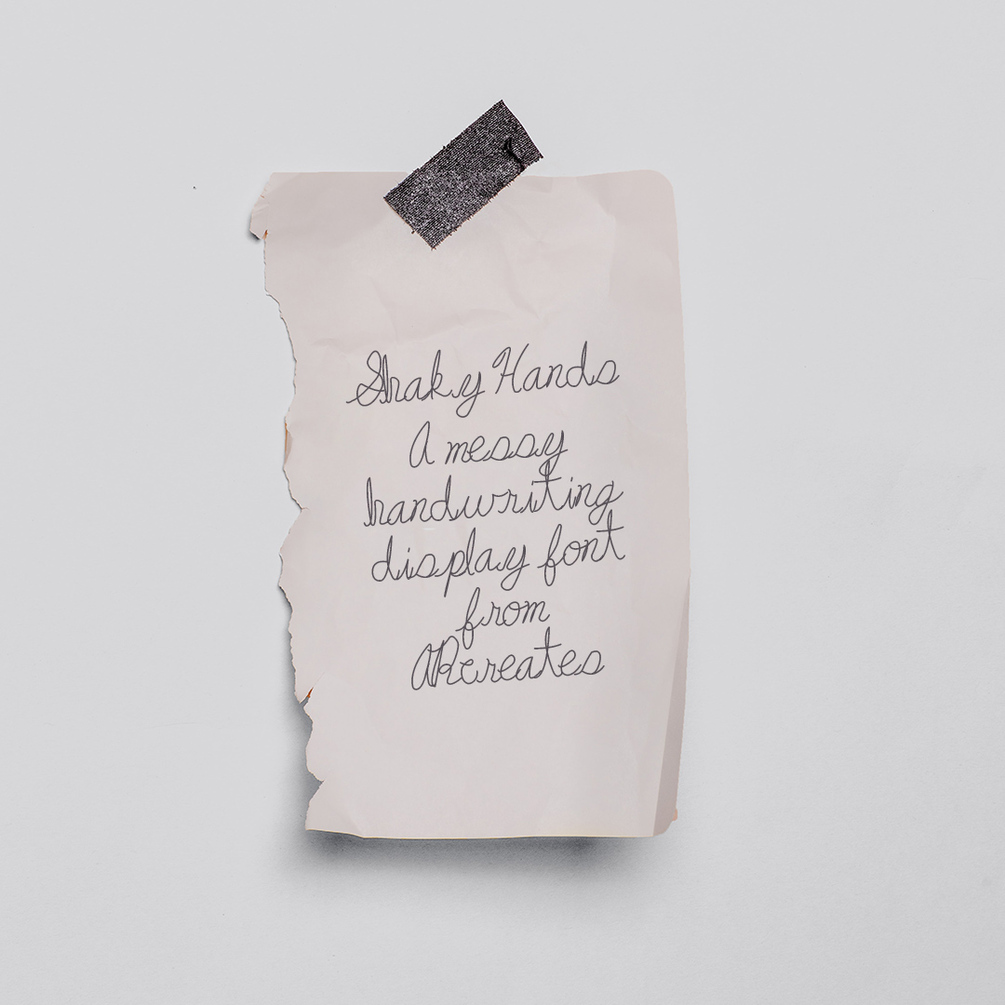 Shaky Hands
A messy
handwriting
display font
from
ARcreates